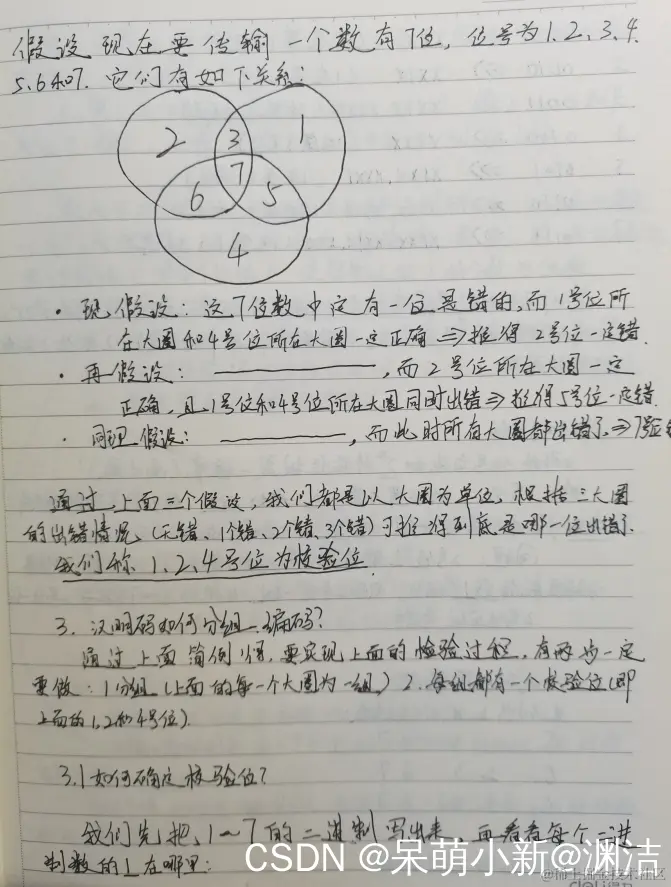 假设现在要传输一个数有7位，位号为1.2.3.4.
5.6和7. 它们有如下关系：
2 3 1
7
6 5
4
· 现假设：这7位数中定有一位是错的，而1号位所
在大圈和4号位所在大圈一定正确 ⇒推得 2号位一定错.
· 再假设： ————，而2号位所在大圈一定
正确，且1号位和4号位所在大圈同时出错⇒推得5号位一定错.
· 同理假设： ————，而此时所有大圈都出错了⇒7号位错
通过上面三个假设，我们都是以大圈为单位，根据三大圈
的出错情况（无错、1个错、2个错、3个错）可推得到底是哪一位出错了.
我们称1、2、4号位为校验位.
3. 汉明码如何分组、编码？
通过上面简例可得，要实现上面的检验过程，有两步一定
要做：1 分组（上面的每一个大圈为一组） 2. 每组都有一个校验位（即
上面的1、2和4号位）.
3.1 如何确定校验位？
我们先把1～7的二进制写出来，再看看每个二进
制数的1在哪里：
CSDN @呆萌小新@渊洁
@稀土掘金技术社区